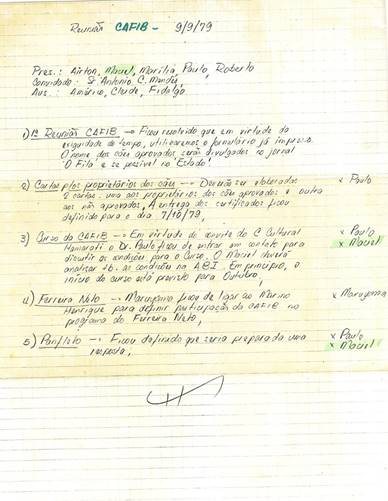 Reunião CAFIB - 9/9/79
Pres.: Airton, Maciel, Marília, Paulo, Roberto
Convidado: Sr. Antonio C. Mendes
Aus.: Américo, Cleide, Fidalgo
1) 1ª Reunião CAFIB → Ficou resolvido que em virtude da
exiguidade de tempo, utilizaremos o formulário já impresso.
O nome dos cães aprovados serão divulgados no jornal
"O Fila" e se possível no "Estado".
2) Cartas p/os proprietários dos cães -- Deverão ser elaboradas x Paulo
2 cartas: uma aos proprietários dos cães aprovados e outra
aos não aprovados. A entrega dos certificados ficou
definido para o dia 7/10/79.
3) Curso do CAFIB -- Em virtude do convite do C. Cultural x Paulo
o Dr. Paulo ficou de entrar em contato para x Maciel
discutir as condições para o Curso. O Maciel deverá
analisar tb. as condições na ABI. Em princípio, o
início do curso está previsto para Outubro.
4) Ferreira Neto -- ficou de ligar ao Marino
Henrique para definir participação do CAFIB no
programa do Ferreira Neto.
5) Panfleto -- Ficou definido que seria preparada uma x Paulo
resposta. x Maciel